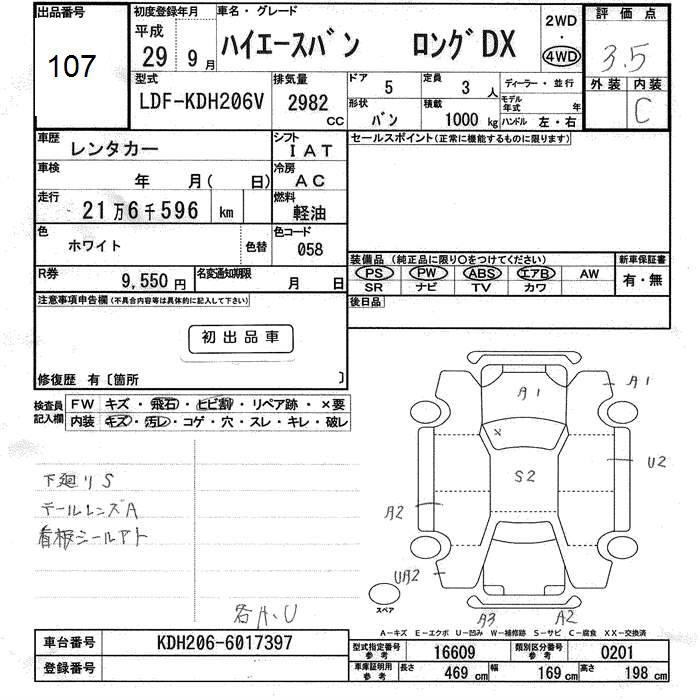 出品番号
107
初度登録年月
平成
29年 9月
車名・グレード
ハイエースバン ロングDX
2WD
・
4WD
評価点
3.5
外装 内装
C
型式
LDF-KDH206V
排気量
2982
CC
ドア
5
定員
3人
ディーラー・並行
形状
バン
積載
1000kg
モデル年式 年
ハンドル 左・右
車歴
レンタカー
シフト
IAT
セールスポイント(正常に機能するものに限ります)
車検
年 月( 日)
冷房
AC
走行
21万6千596 km
燃料
軽油
色
ホワイト
色替
色コード
058
装備品 (純正品に限り○をつけてください)
新車保証書
PS PW ABS エアB AW
有・無
SR ナビ TV カワ
R券
9,550円
名変通知期限
月 日
後日品
注意事項申告欄(不具合内容等は具体的に記入して下さい)
初出品車
修復歴 有〔箇所 〕
検査員記入欄
FW キズ・飛石・ヒビ割・リペア跡・×要
内装 キズ・汚レ・コゲ・穴・スレ・キレ・破レ
下廻リS
テールレンズA
看板シールアト
各A、U
A1
A1
×
S2
U2
A2
UA2
スペア
A3
A2
A-キズ E-エクボ U-凹み W-補修跡 S-サビ C-腐食 XX-交換済
車台番号
KDH206-6017397
型式指定番号
参考
16609
類別区分番号
参考
0201
登録番号
車庫証明用
参考
長さ
469 cm
幅
169 cm
高さ
198 cm